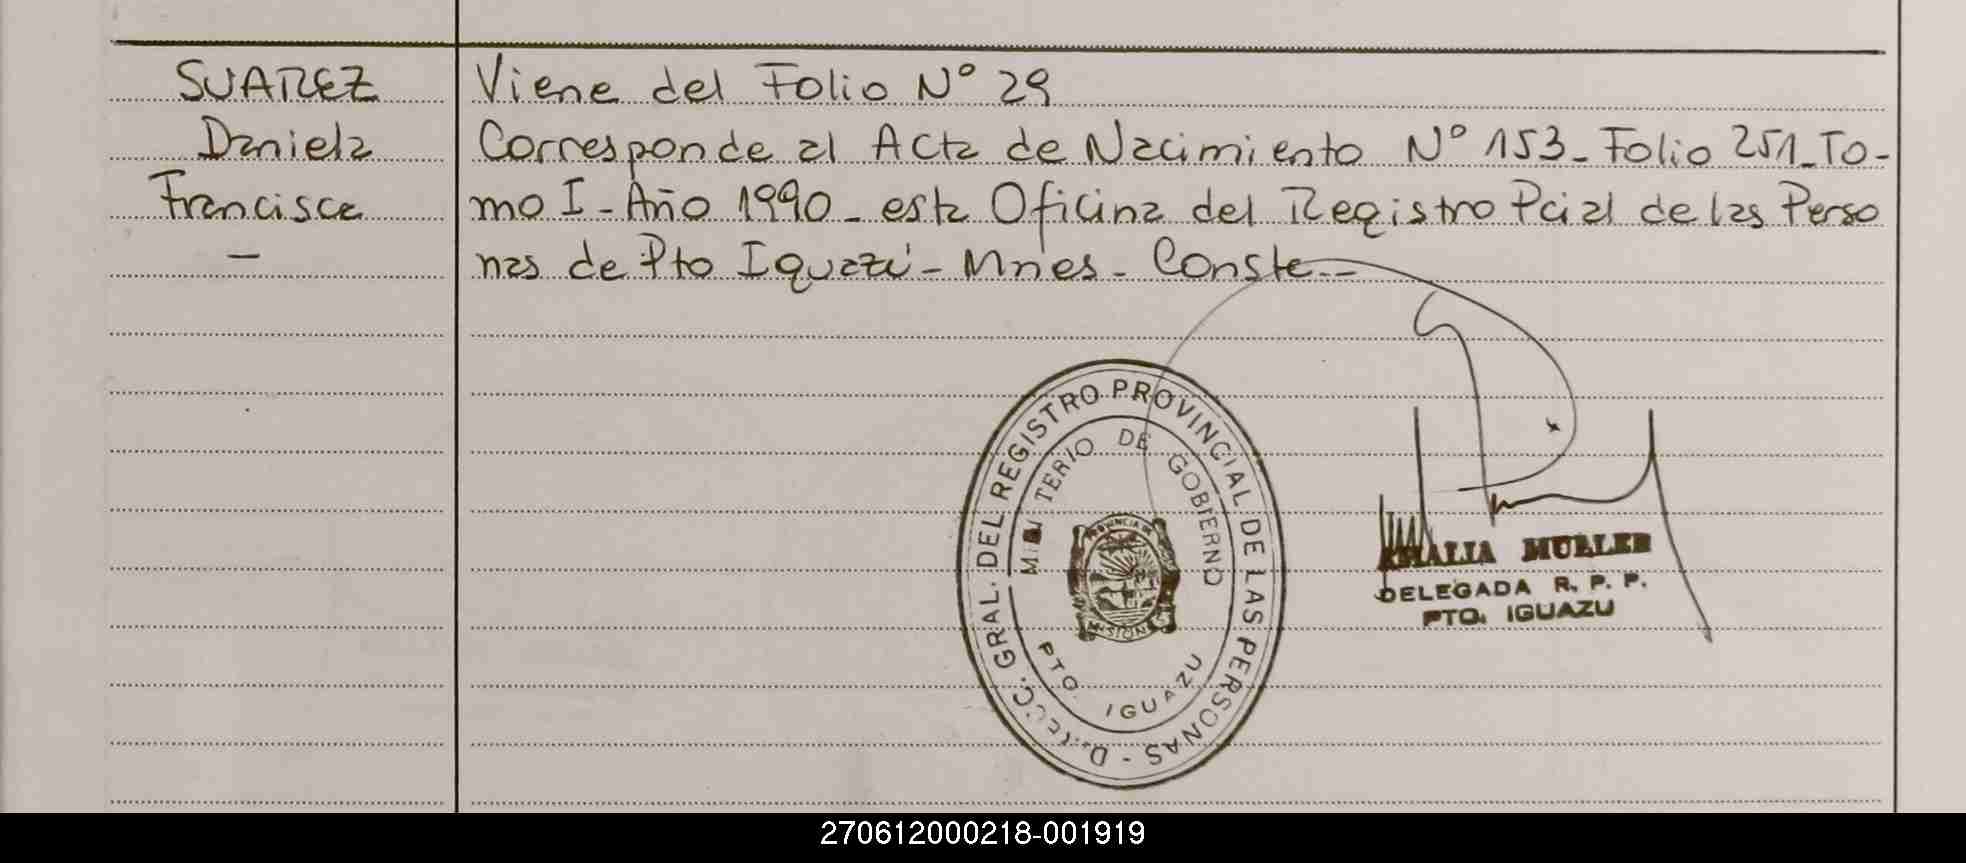 SUAREZ
Daniela
Francisca
-
Viene del Folio Nº 29
Corresponde al Acta de Nacimiento Nº 153_ Folio 251_To-
mo I_Año 1990_ esta Oficina del Registro Pcial de las Perso
nas de Pto Iguazú - Mnes - Conste.-
DIRECC. GRAL. DEL REGISTRO PROVINCIAL DE LAS PERSONAS -
MINISTERIO DE GOBIERNO
PROVINCIA DE
MISIONES
PTO. IGUAZU
MULLER
DELEGADA R. P. P.
PTO. IGUAZU
270612000218-001919